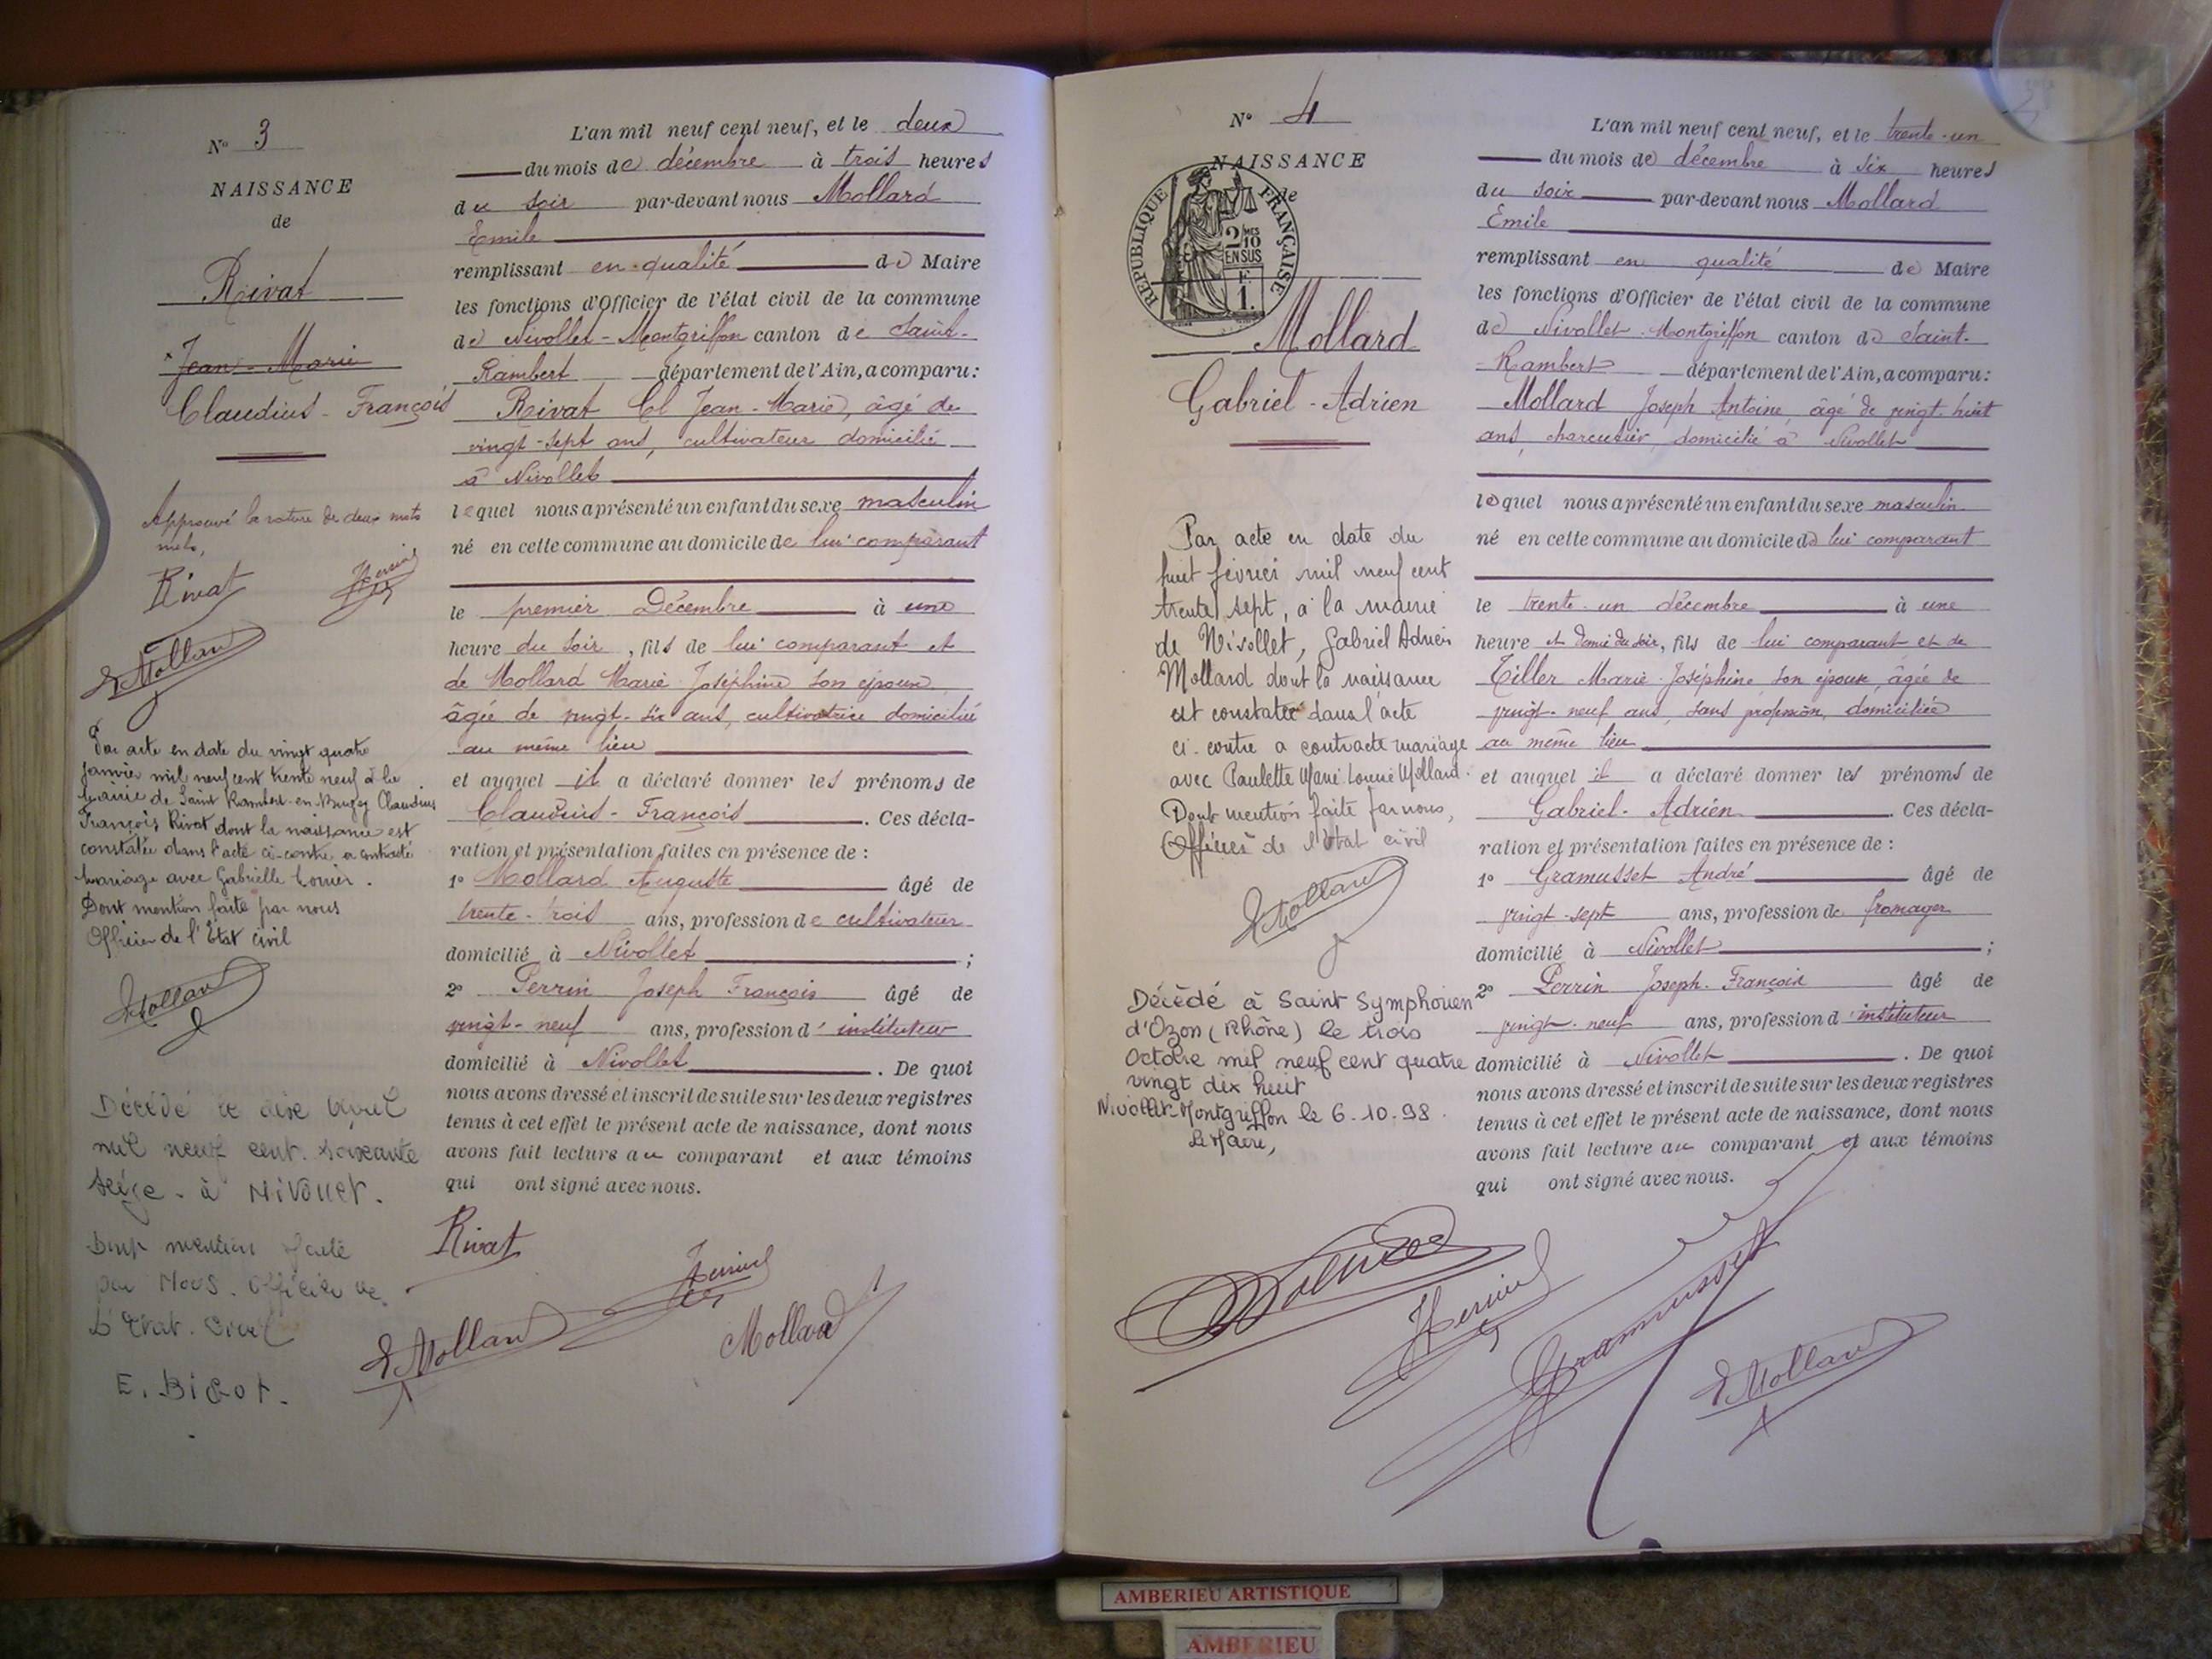 N° 3
NAISSANCE
de
Rivat
Jean-Marie
Claudius-François
Approuvé la rature de deux mots
mots,
Rivat
E Mollard
Par acte en date du vingt quatre
janvier mil neuf cent trente neuf à la
mairie de Saint Rambert-en-Bugey Claudius
François Rivat dont la naissance est
constatée dans l'acte ci-contre a contracté
mariage avec Gabrielle
Dont mention faite par nous
Officier de l'Etat civil
E Mollard
Décédé le
mil neuf cent soixante
seize - à Nivollet.
Dont mention faite
par Nous. Officier de
L'Etat. Civil
E. Bigot.
L'an mil neuf cent neuf, et le deux
du mois de décembre à trois heures
du soir par-devant nous Mollard
Emile
remplissant en qualité de Maire
les fonctions d'Officier de l'état civil de la commune
de Nivollet-Montgriffon canton de Saint-
Rambert département de l'Ain, a comparu:
Rivat Cl Jean-Marie, âgé de
vingt-sept ans, cultivateur domicilié
à Nivollet
lequel nous a présenté un enfant du sexe masculin
né en cette commune au domicile de lui comparant
le premier Décembre à une
heure du soir, fils de lui comparant et
de Mollard Marie Joséphine son épouse
âgée de vingt-six ans, cultivatrice domiciliée
au même lieu
et auquel il a déclaré donner les prénoms de
Claudius-François. Ces décla-
ration et présentation faites en présence de :
1° Mollard Auguste âgé de
trente-trois ans, profession de cultivateur
domicilié à Nivollet ;
2° Perrin Joseph François âgé de
vingt-neuf ans, profession d'instituteur
domicilié à Nivollet. De quoi
nous avons dressé et inscrit de suite sur les deux registres
tenus à cet effet le présent acte de naissance, dont nous
avons fait lecture au comparant et aux témoins
qui ont signé avec nous.
Rivat
E Mollard
Mollard
N° 4
NAISSANCE
de
REPUBLIQUE FRANÇAISE
2/10 MES
EN SUS
F.
1.
Mollard
Gabriel-Adrien
Par acte en date du
huit février mil neuf cent
trente sept, à la mairie
de Nivollet, Gabriel Adrien
Mollard dont la naissance
est constatée dans l'acte
ci-contre a contracté mariage
avec Paulette Marie Louise Mollard.
Dont mention faite par nous,
Officier de l'état civil
E Mollard
Décédé à Saint Symphorien
d'Ozon (Rhône) le trois
Octobre mil neuf cent quatre
vingt dix huit
Nivollet-Montgriffon le 6.10.98.
Le Maire,
L'an mil neuf cent neuf, et le trente-un
du mois de décembre à six heures
du soir par-devant nous Mollard
Emile
remplissant en qualité de Maire
les fonctions d'Officier de l'état civil de la commune
de Nivollet-Montgriffon canton de Saint-
Rambert département de l'Ain, a comparu:
Mollard Joseph Antoine, âgé de vingt-huit
ans, charcutier, domicilié à Nivollet
lequel nous a présenté un enfant du sexe masculin
né en cette commune au domicile de lui comparant
le trente-un décembre à une
heure et demie du soir, fils de lui comparant et de
Tiller Marie-Joséphine, son épouse, âgée de
vingt-neuf ans, sans profession, domiciliée
au même lieu
et auquel il a déclaré donner les prénoms de
Gabriel-Adrien. Ces décla-
ration et présentation faites en présence de :
1° Gramusset André âgé de
vingt-sept ans, profession de fromager
domicilié à Nivollet ;
2° Perrin Joseph-François âgé de
vingt-neuf ans, profession d'instituteur
domicilié à Nivollet. De quoi
nous avons dressé et inscrit de suite sur les deux registres
tenus à cet effet le présent acte de naissance, dont nous
avons fait lecture au comparant et aux témoins
qui ont signé avec nous.
Gramusset
E Mollard
AMBERIEU ARTISTIQUE
AMBERIEU